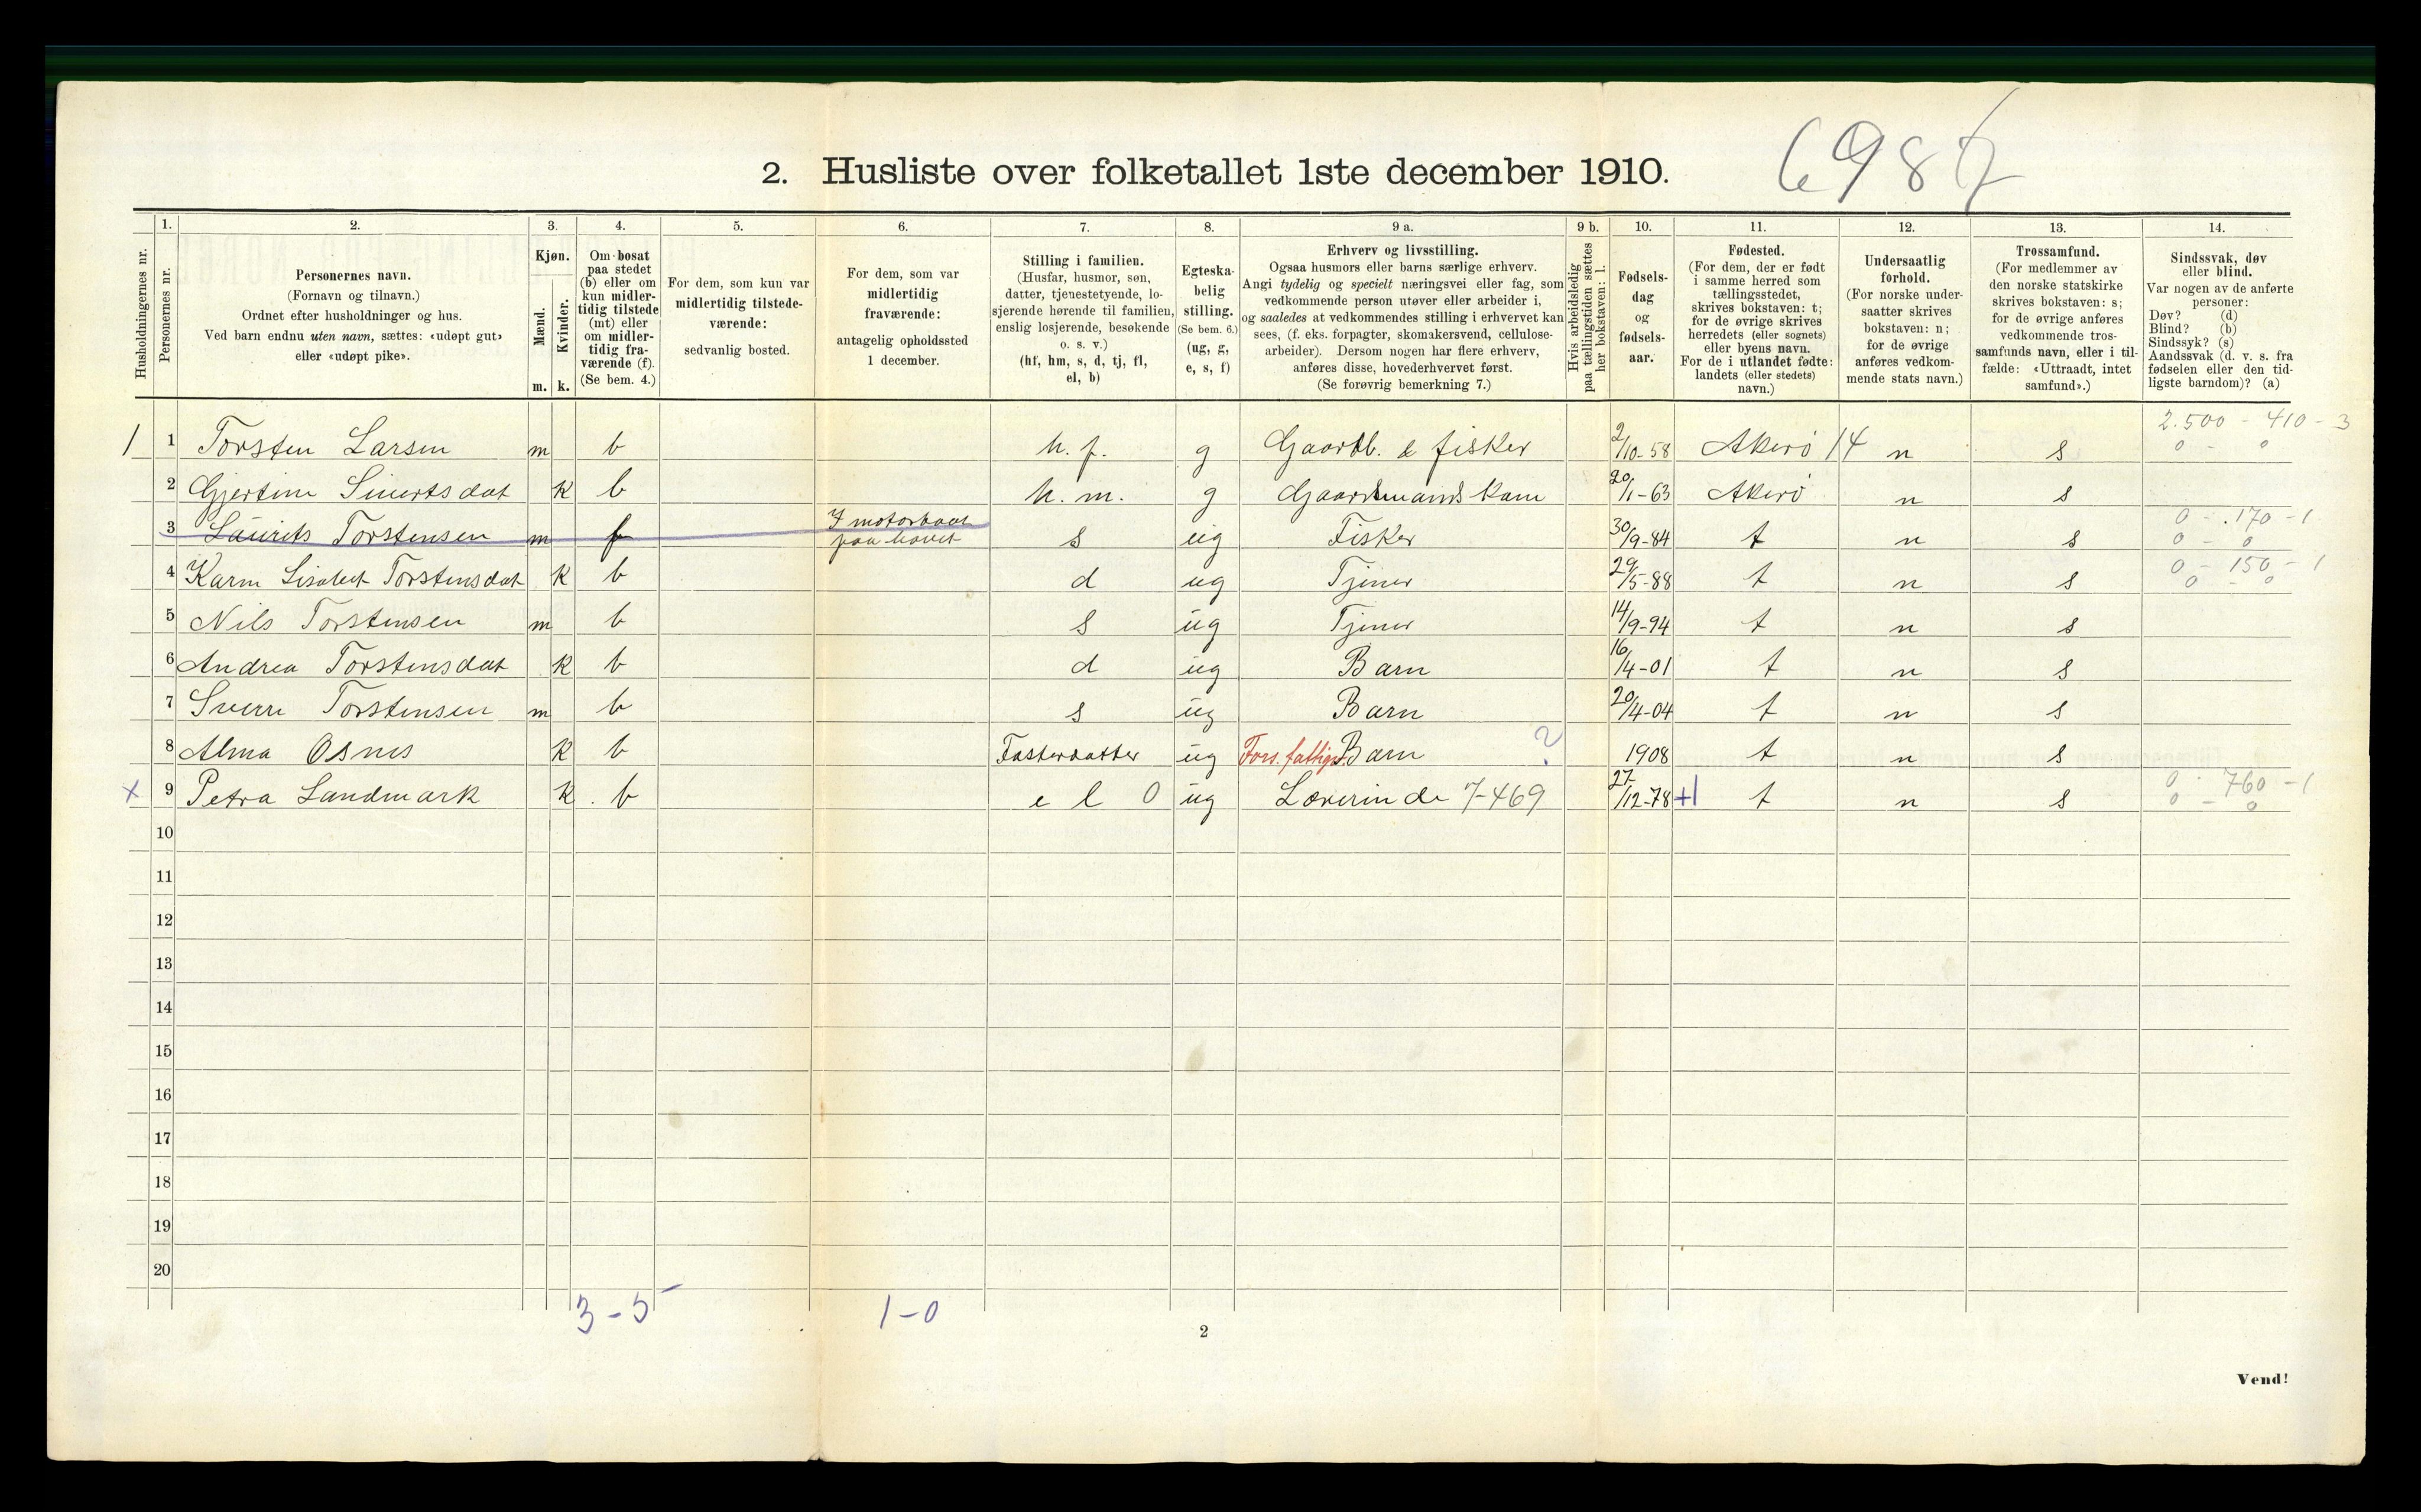 6987
2. Husliste over folketallet 1ste december 1910.
1. 2. 3. 4. 5. 6. 7. 8. 9 a. 9 b. 10. 11. 12. 13. 14.
Husholdningernes nr.
Personernes nr.
Personernes navn.
(Fornavn og tilnavn.)
Ordnet efter husholdninger og hus.
Ved barn endnu uten navn, sættes: «udøpt gut»
eller «udøpt pike».
Kjøn.
Mænd.
Kvinder.
m. k.
Om bosat
paa stedet
(b) eller om
kun midler-
tidig tilstede
(mt) eller
om midler-
tidig fra-
værende (f).
(Se bem. 4.)
For dem, som kun var
midlertidig tilstede-
værende:
sedvanlig bosted.
For dem, som var
midlertidig
fraværende:
antagelig opholdssted
1 december.
Stilling i familien.
(Husfar, husmor, søn,
datter, tjenestetyende, lo-
sjerende hørende til familien,
enslig losjerende, besøkende
o. s. v.)
(hf, hm, s, d, tj, fl,
el, b)
Egteska-
belig
stilling.
(Se bem. 6.)
(ug, g,
e, s, f)
Erhverv og livsstilling.
Ogsaa husmors eller barns særlige erhverv.
Angi tydelig og specielt næringsvei eller fag, som
vedkommende person utøver eller arbeider i,
og saaledes at vedkommendes stilling i erhvervet kan
sees, (f. eks. forpagter, skomakersvend, cellulose-
arbeider). Dersom nogen har flere erhverv,
anføres disse, hovederhvervet først.
(Se forøvrig bemerkning 7.)
Hvis arbeidsledig
paa tællingstiden sættes
her bokstaven: l.
Fødsels-
dag
og
fødsels-
aar.
Fødested.
(For dem, der er født
i samme herred som
tællingsstedet,
skrives bokstaven: t;
for de øvrige skrives
herredets (eller sognets)
eller byens navn.
For de i utlandet fødte:
landets (eller stedets)
navn.)
Undersaatlig
forhold.
(For norske under-
saatter skrives
bokstaven: n;
for de øvrige
anføres vedkom-
mende stats navn.)
Trossamfund.
(For medlemmer av
den norske statskirke
skrives bokstaven: s;
for de øvrige anføres
vedkommende tros-
samfunds navn, eller i til-
fælde: «Uttraadt, intet
samfund».)
Sindssvak, døv
eller blind.
Var nogen av de anførte
personer:
Døv? (d)
Blind? (b)
Sindssyk? (s)
Aandssvak (d. v. s. fra
fødselen eller den tid-
ligste barndom)? (a)
2.500 - 410 - 3
1 1 Torsten Larsen m b h. f. g Gaardb. & fisker 2/10-58 Akerö 14 n s 0 - 0
2 Gjertine Sivertsdat k b h. m. g Gaardmands kone 20/1-63 Akerö n s
I motorbaat 0 - .170 - 1
3 Laurits Torstensen m f paa havet s ug Fisker 30/9-84 t n s 0 - 0
0 - 150 - 1
4 Karen Lisabet Torstensdat k b d ug Tjener 29/5-88 t n s 0 - 0
5 Nils Torstensen m b s ug Tjener 14/9-94 t n s
6 Andrea Torstensdat k b d ug Barn 16/4-01 t n s
7 Sverre Torstensen m b s ug Barn 20/4-04 t n s
8 Alma Osnes k b Fosterdatter ug Fors. fattigv. Barn ? 1908 t n s
0 - 760 - 1
x 9 Petra Landmark k b e l 0 ug Lærerinde 7-469 27/12-78 +1 t n s 0 - 0
10
11
12
13
14
15
16
17
18
19
20
3 - 5 1 - 0
2
Vend!